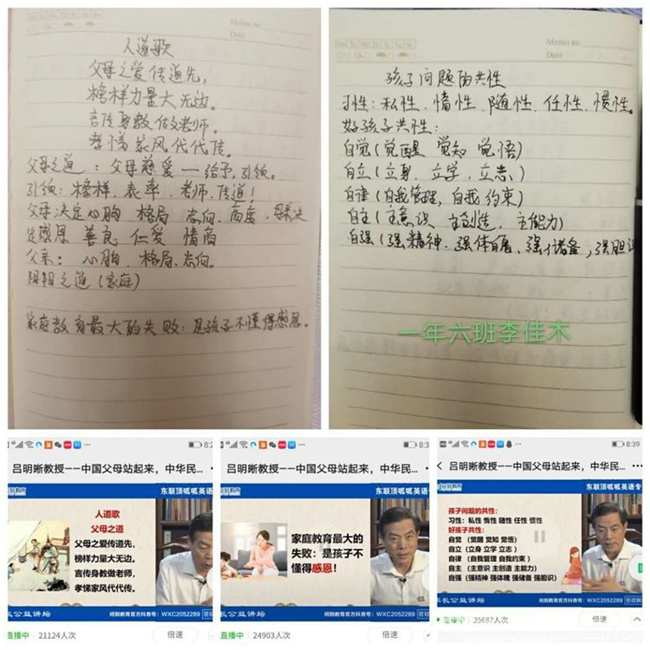 人道歌
父母之爱传道先,
榜样力量大无边。
言传身教做老师。
孝悌家风代代传。
父母之道:父母慈爱——给予,引领。
引领:榜样、表率、老师,传道!
父母决定心胸 格局 志向 高度
感恩 善良 仁爱 情商
父亲: 心胸 格局、志向。
阴阳之道(家庭)
家庭教育最大的失败:是孩子不懂得感恩。
孩子问题的共性
习性:私性、惰性、随性、任性、惯性。
好孩子共性:
自觉(觉醒 觉知 觉悟)
自立(立身、立学、立志)
自律(自我管理,自我约束)
自主(主意识 主创造、主能力)
自强(强精神、强体魄、强储备,强胆识
一年六班李佳木
吕明晰教授——中国父母站起来,中华民...
东联顶呱呱英语
人道歌
父母之道
父母之爱传道先,
榜样力量大无边。
言传身教做老师,
孝悌家风代代传。
长公益讲坛
WXC2052289
直播中 21124人次
倍速
吕明晰教授——中国父母站起来,中华民...
东联顶呱呱英语
家庭教育最大的
失败:是孩子不
懂得感恩!
长公益讲坛
WXC2052289
直播中 24903人次
倍速
8:39
吕明晰教授——中国父母站起来,中华民...
东联顶呱呱英语专
孩子问题的共性:
习性:私性 惰性 随性 任性 惯性
好孩子共性:
自觉 (觉醒 觉知 觉悟)
自立 (立身 立学 立志 )
自律 (自我管理 自我约束 )
自主 (主意识 主创造 主能力)
自强 (强精神 强体魄 强储备 强胆识)
长公益讲坛
WXC2052289
直播中 25687人次
倍速